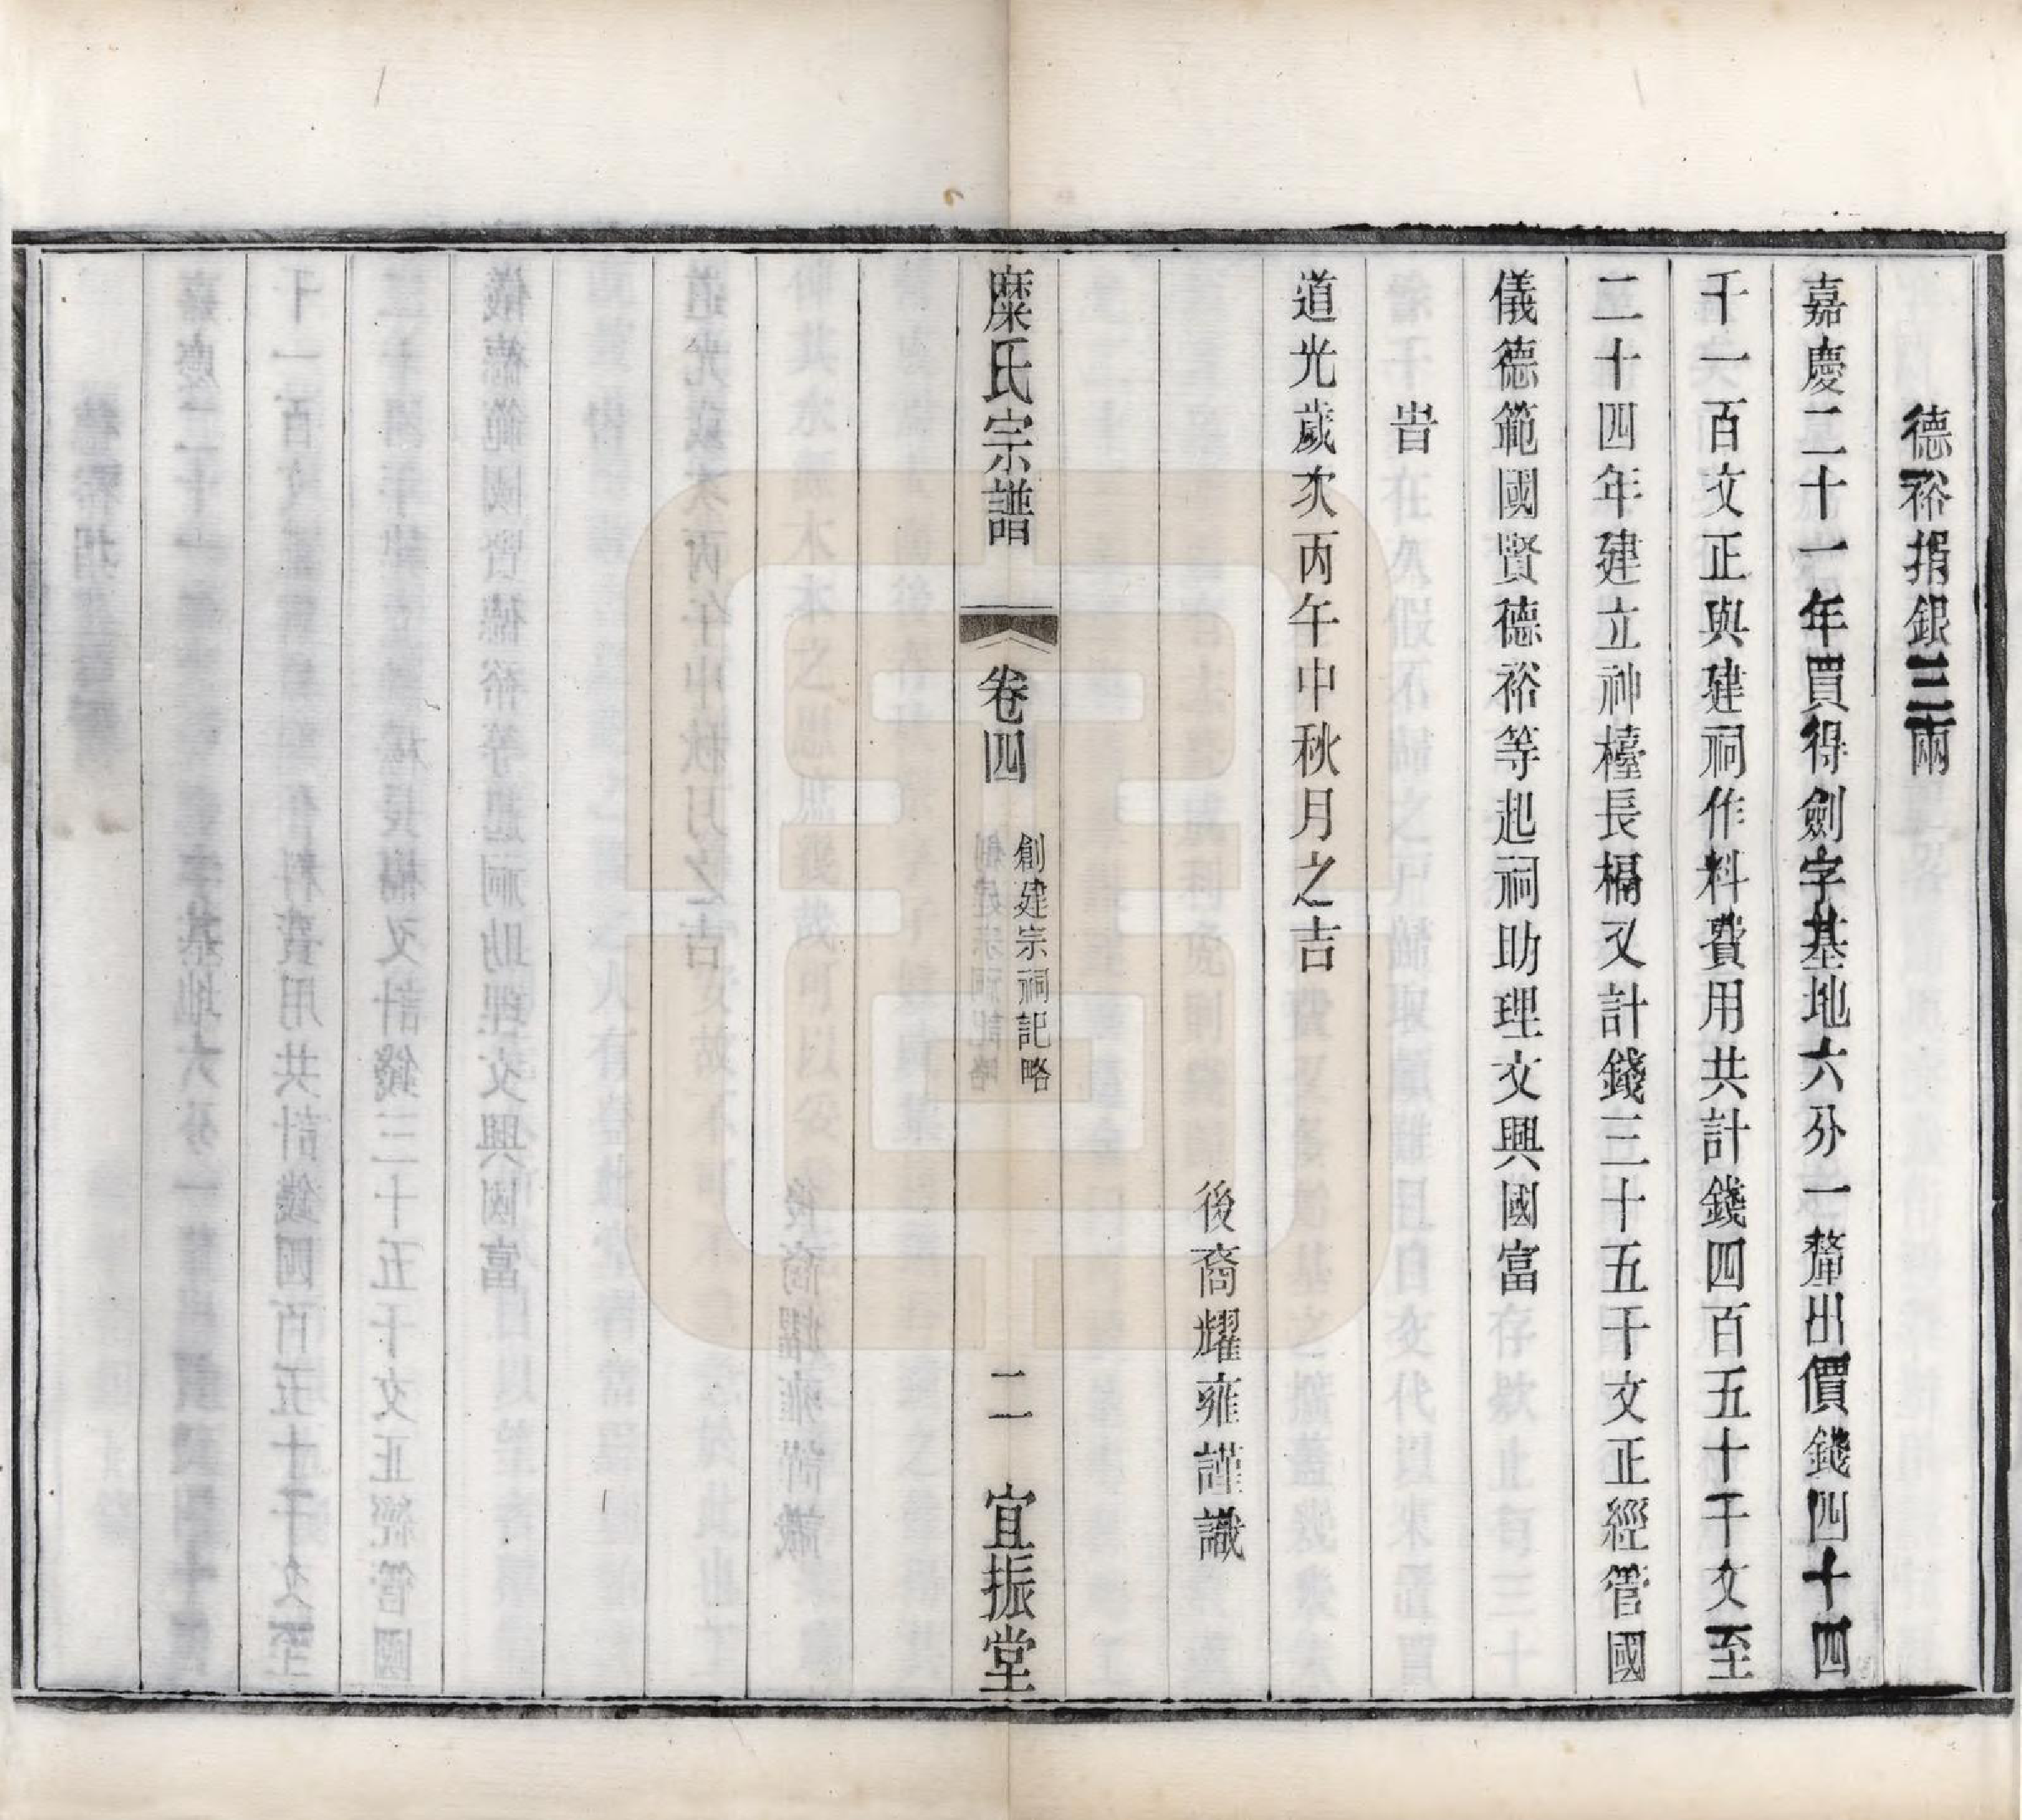 德裕捐銀三兩
嘉慶二十一年買得劍字基地六分一釐出價錢四十四
千一百文正與建祠作料費用共計錢四百五十千文至
二十四年建立神檯長槅又計錢三十五千文正經管國
儀德範國賢德裕等起祠助理文興國富
旹
道光歲次丙午中秋月之吉
後裔耀雍謹識
糜氏宗譜
卷四
創建宗祠記略
二
宜振堂